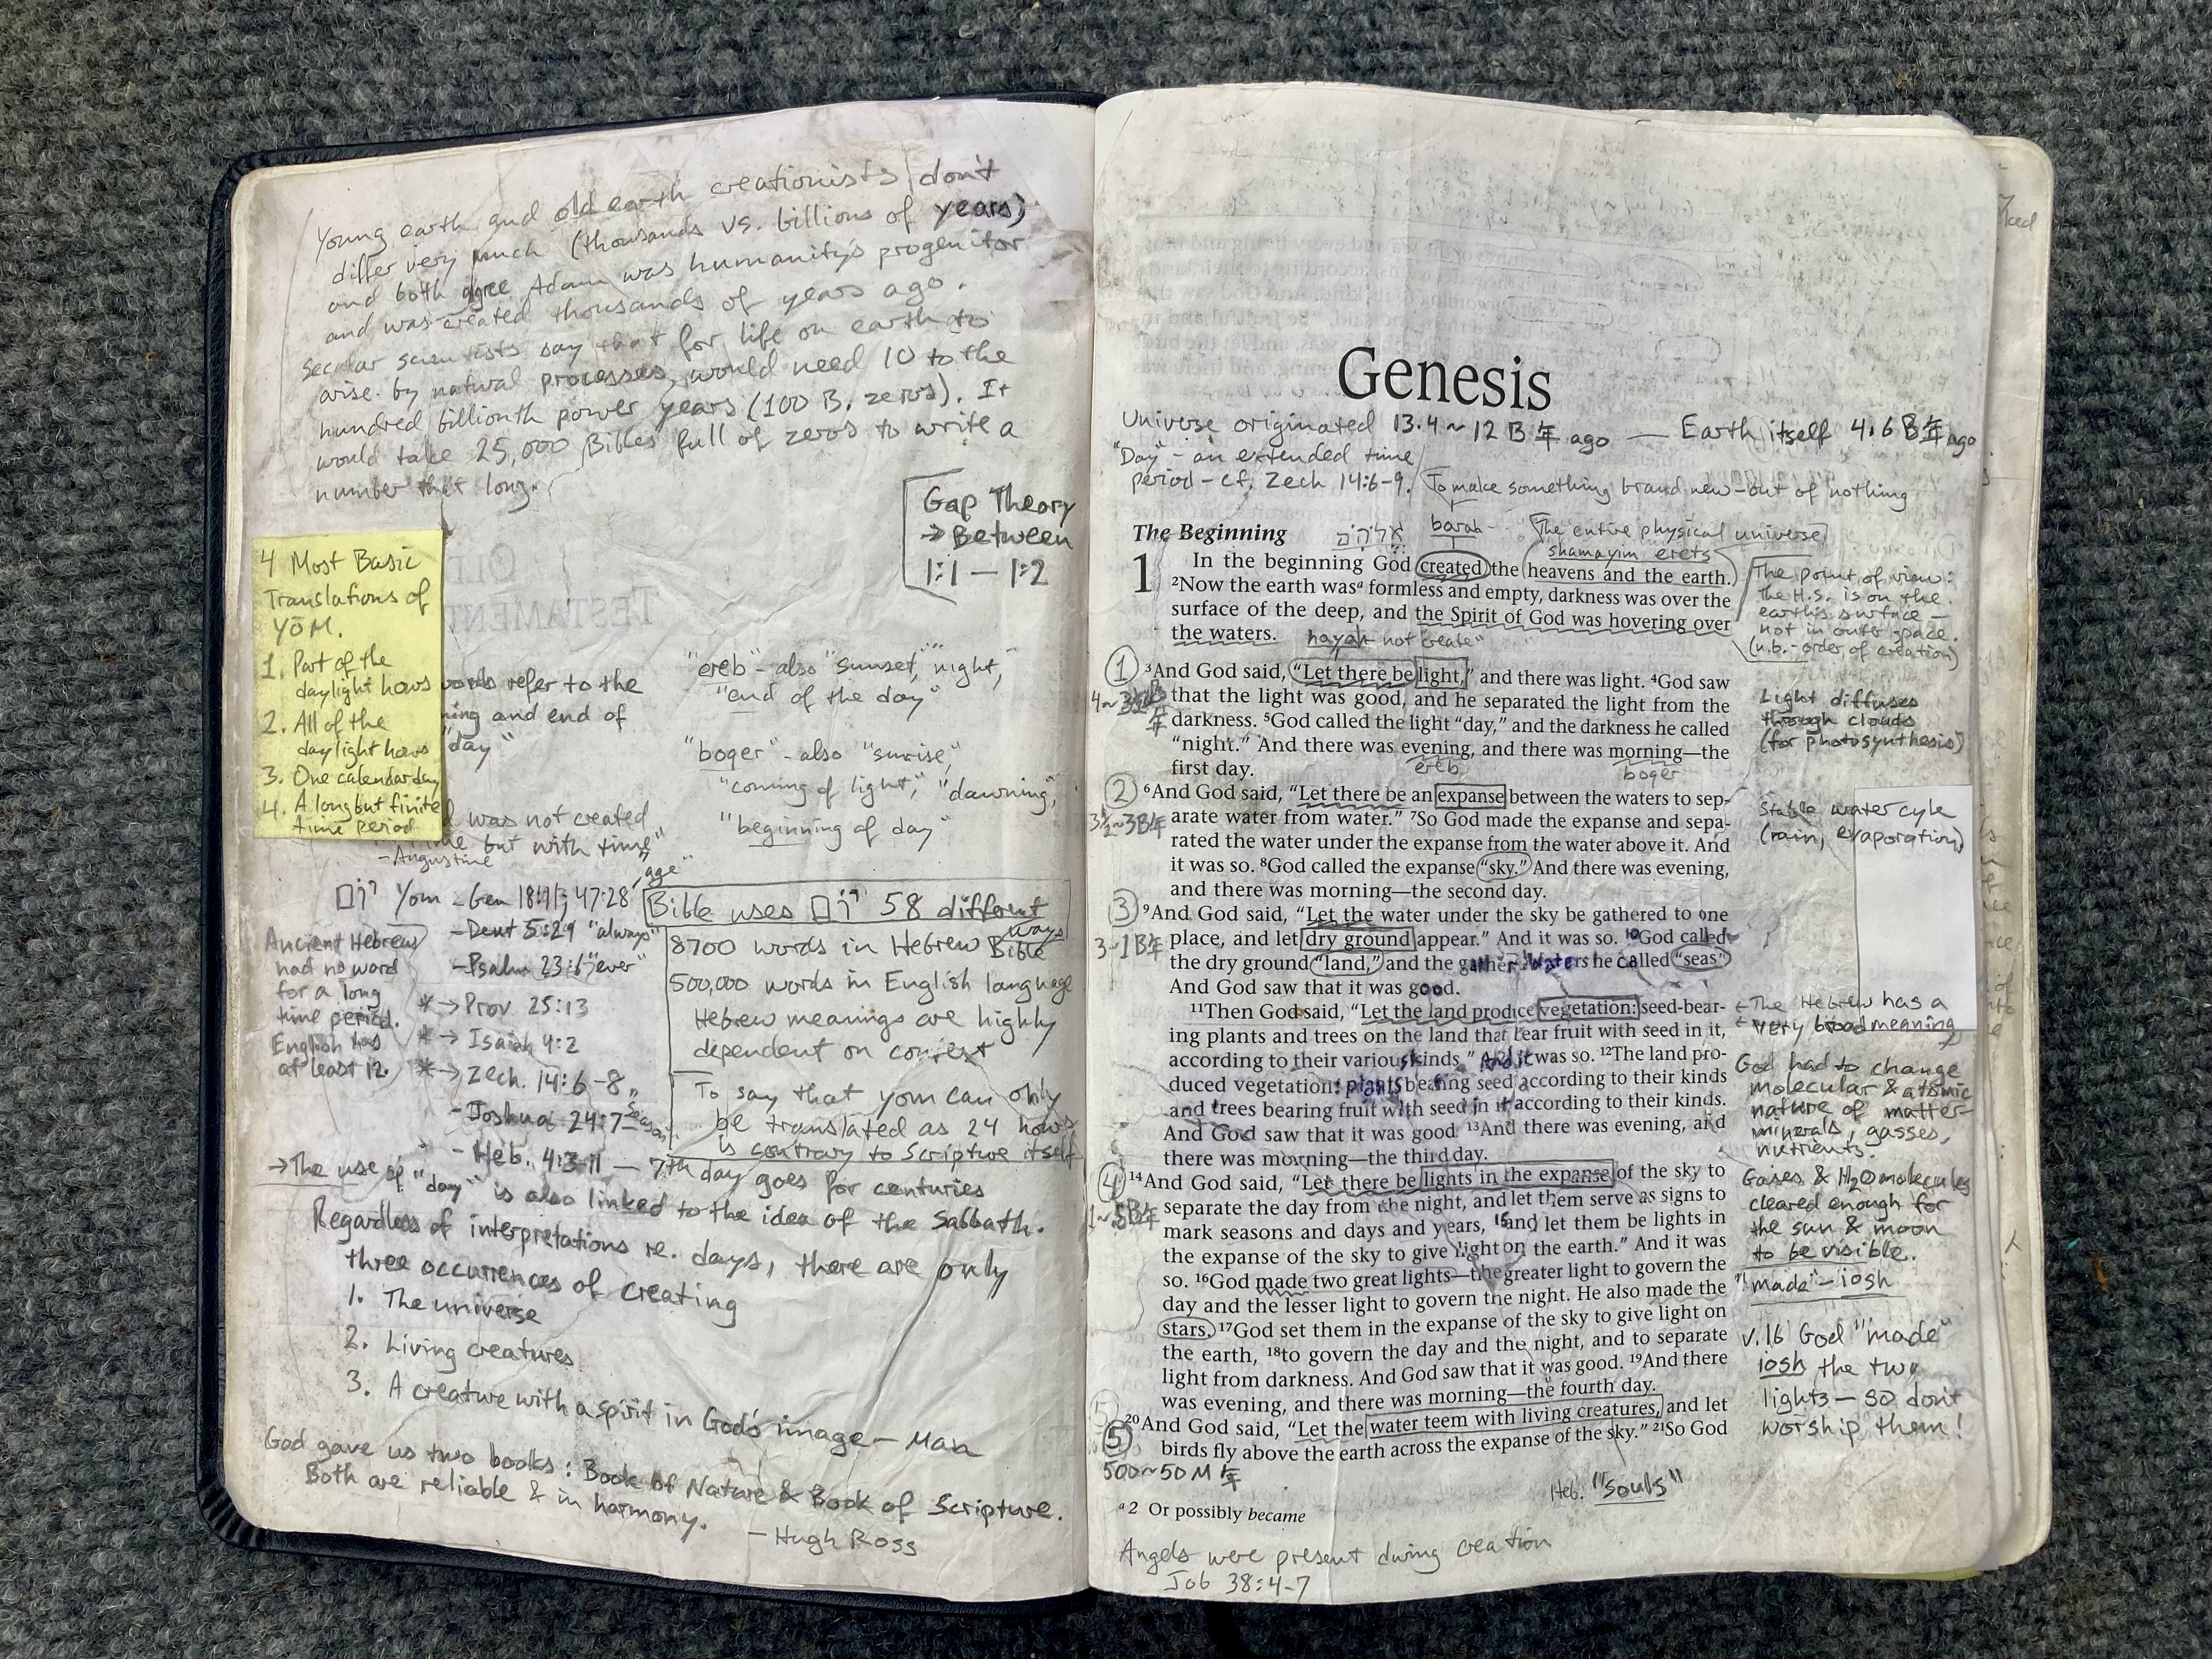 Young earth and old earth creationists don't
differ very much (thousands vs. billions of years)
and both agree Adam was humanity's progenitor
and was created thousands of years ago.
Secular scientists say that for life on earth to
arise by natural processes, would need 10 to the
hundred billionth power years (100 B. zeros). It
would take 25,000 Bibles full of zeros to write a
number that long.
Gap Theory
→ Between
1:1 — 1:2
4 Most Basic
Translations of
YŌM.
1. Part of the
daylight hours
2. All of the
daylight hours
3. One calendar day
4. A long but finite
time period
OLD
TESTAMENT
words refer to the
ning and end of
"day"
"ereb" - also "sunset," "night,"
"end of the day"
"boger" - also "sunrise,"
"coming of light," "dawning,"
"beginning of day"
was not created
me but with time"
- Augustine
"age"
Yom - Gen 18:11; 47:28
- Deut 5:29 "always"
- Psalm 23:6 "ever"
* → Prov 25:13
* → Isaiah 4:2
* → Zech. 14:6-8
- Joshua 24:7 "season"
- Heb. 4:3-11 — 7th day goes for centuries
Ancient Hebrews
had no word
for a long
time period.
English has
at least 12.
Bible uses 58 different
ways
8700 words in Hebrew Bible
500,000 words in English language
Hebrew meanings are highly
dependent on context
To say that yom can only
be translated as 24 hours
is contrary to Scripture itself
→ The use of "day" is also linked to the idea of the Sabbath.
Regardless of interpretations re. days, there are only
three occurrences of creating
1. The universe
2. Living creatures
3. A creature with a spirit in God's image — Man
God gave us two books: Book of Nature & Book of Scripture.
Both are reliable & in harmony.
— Hugh Ross
Genesis
Universe originated 13.4~12 B年 ago — Earth itself 4.6 B年 ago
"Day" - an extended time
period - cf. Zech 14:6-9.
To make something brand new - out of nothing
barah -
The entire physical universe
shamayim erets
The Beginning
1 In the beginning God created the heavens and the earth.
²Now the earth wasᵃ formless and empty, darkness was over the
surface of the deep, and the Spirit of God was hovering over
the waters.
hayah not "create"
The point of view:
The H.S. is on the
earth's surface —
not in outer space.
(n.b. - order of creation)
①
4~3½B年
³And God said, "Let there be light," and there was light. ⁴God saw
that the light was good, and he separated the light from the
darkness. ⁵God called the light "day," and the darkness he called
"night." And there was evening, and there was morning—the
first day.
ereb
boger
Light diffuses
through clouds
(for photosynthesis)
②
3½~3B年
⁶And God said, "Let there be an expanse between the waters to sep-
arate water from water." ⁷So God made the expanse and sepa-
rated the water under the expanse from the water above it. And
it was so. ⁸God called the expanse "sky." And there was evening,
and there was morning—the second day.
Stable water cyle
(rain, evaporation)
③
3~1B年
⁹And God said, "Let the water under the sky be gathered to one
place, and let dry ground appear." And it was so. ¹⁰God called
the dry ground "land," and the gather waters he called "seas."
And God saw that it was good.
¹¹Then God said, "Let the land produce vegetation: seed-bear-
ing plants and trees on the land that bear fruit with seed in it,
according to their various kinds." And it was so. ¹²The land pro-
duced vegetation: plants bearing seed according to their kinds
and trees bearing fruit with seed in it according to their kinds.
And God saw that it was good. ¹³And there was evening, and
there was morning—the third day.
← The Hebrew has a
very broad meaning
God had to change
molecular & atomic
nature of matter —
minerals, gasses,
nutrients.
④
1~.5B年
¹⁴And God said, "Let there be lights in the expanse of the sky to
separate the day from the night, and let them serve as signs to
mark seasons and days and years, ¹⁵and let them be lights in
the expanse of the sky to give light on the earth." And it was
so. ¹⁶God made two great lights—the greater light to govern the
day and the lesser light to govern the night. He also made the
stars. ¹⁷God set them in the expanse of the sky to give light on
the earth, ¹⁸to govern the day and the night, and to separate
light from darkness. And God saw that it was good. ¹⁹And there
was evening, and there was morning—the fourth day.
Gases & H₂O molecules
cleared enough for
the sun & moon
to be visible.
"made" - iosh
v.16 God "made"
iosh the two
lights — so don't
worship them!
⑤
500~50M年
²⁰And God said, "Let the water teem with living creatures, and let
birds fly above the earth across the expanse of the sky." ²¹So God
Heb. "souls"
ᵃ2 Or possibly became
Angels were present during creation
Job 38:4-7